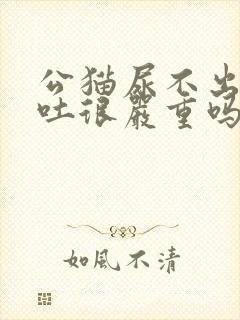 公猫尿不出
吐很嚴重吗
如風不清